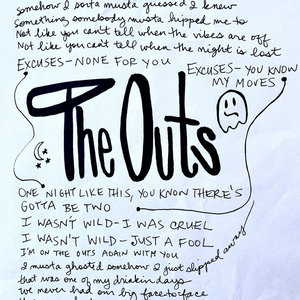 Somehow I sorta musta guessed I knew
Something somebody musta slipped me to
Not like you can't tell when the vibes are off
Not like you can't tell when the night is lost
EXCUSES—NONE FOR YOU
EXCUSES—YOU KNOW
MY MOVES
The Outs
ONE NIGHT LIKE THIS, YOU KNOW THERE'S
GOTTA BE TWO
I WASN'T WILD—I WAS CRUEL
I WASN'T WILD—JUST A FOOL
I'M ON THE OUTS AGAIN WITH YOU
I musta ghosted somehow I just slipped away
that was one of my drinkin days
we never had our big face to face